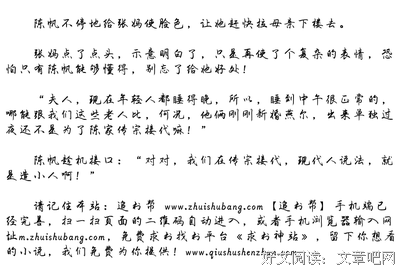 陈帆不停地给张妈使脸色，让她赶快拉母亲下楼去。
张妈点了点头，示意明白了，只是再使了个复杂的表情，恐
怕只有陈帆能够懂得，别忘了给她好处！
“夫人，现在年轻人都睡得晚，所以，睡到中午很正常的，
哪能跟我们这些老人比，何况，他俩刚刚新婚燕尔，出来单独过
夜还不是为了陈家传宗接代嘛！”
陈帆趁机接口：“对对，我们在传宗接代，现代人说法，就
是造小人啊！”
请记住本站：追书帮 www.zhuishubang.com【追书帮】手机端已
经完善，扫一扫页面的二维码自动进入，或者手机浏览器输入网
址m.zhuishubang.com，免费求书找书平台《求书神站》，留下你想看
的小说，我们免费为你提供！www.qiushushenzhan.com
好文阅读：文章吧网